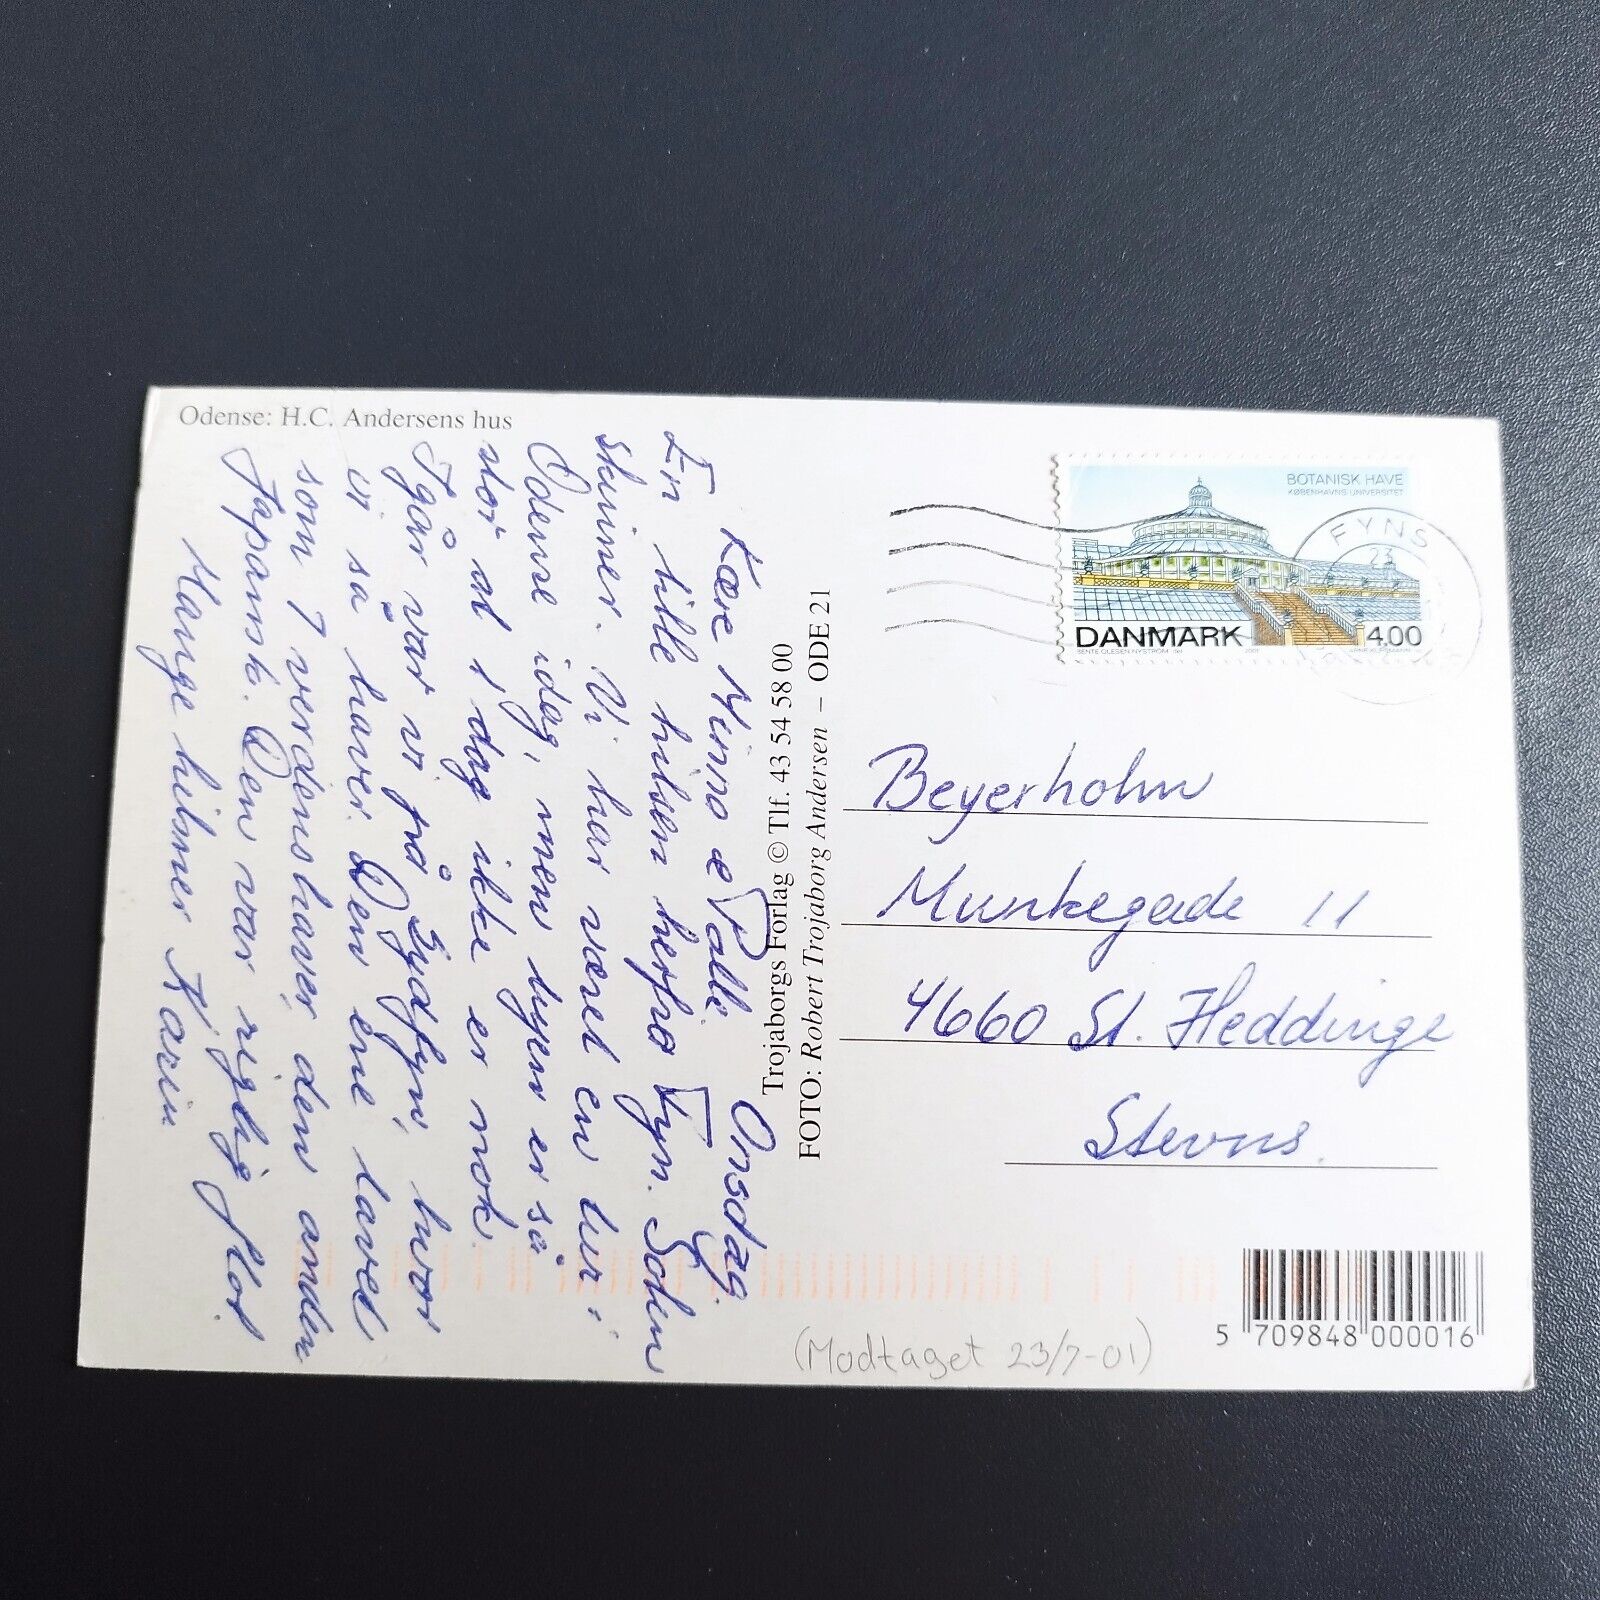 Odense: H.C. Andersens hus
Onsdag.
Kære Minna & Palle.
En lille hilsen herfra Fyn. Solen
skinner. Vi har været en tur i
Odense idag, men byen er så
stor at 1 dag ikke er nok.
Igår var vi på Sydfyn, hvor
vi så haver. Den ene lavet
som 7 verdenshaver, den anden
Japansk. Den var rigtig flot.
Mange hilsner Karin
Trojaborgs Forlag © Tlf. 43 54 58 00
FOTO: Robert Trojaborg Andersen – ODE 21
BOTANISK HAVE
KØBENHAVNS UNIVERSITET
DANMARK 4.00
BENTE OLESEN NYSTRÖM del. 2001
FYNS
23
Beyerholm
Munkegade 11
4660 St. Heddinge
Stevns.
(Modtaget 23/7-01)
5 709848 000016